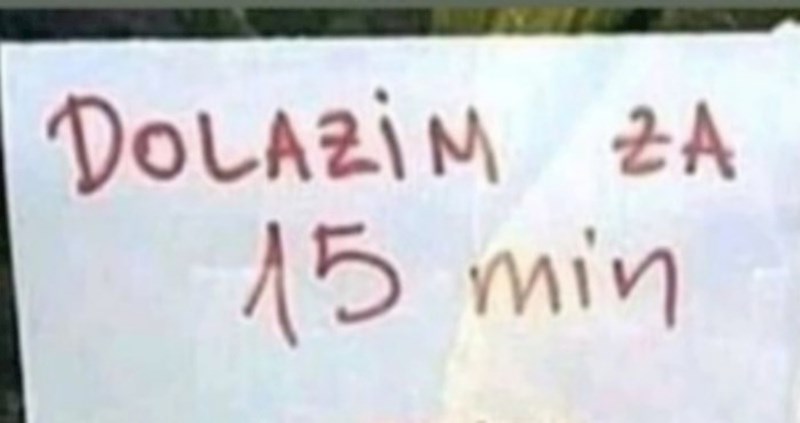 DOLAZiM ZA
15 min